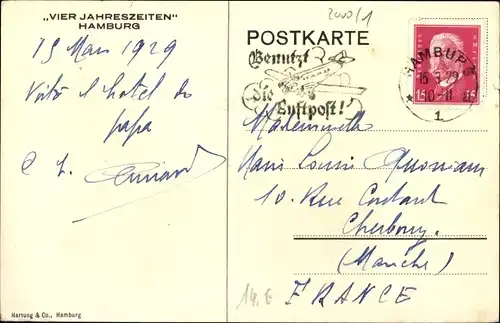 „VIER JAHRESZEITEN"
HAMBURG
15 Mars 1929
Voilà l'hotel de
papa
POSTKARTE
2000/1
Benutzt
Die Luftpost!
HAMBURG
15. 3. 29
10-11
1
15 15
Mademoiselle
Marie Louise
10. Rue Coutant
Cherbourg
(Manche)
FRANCE
Hartung & Co., Hamburg